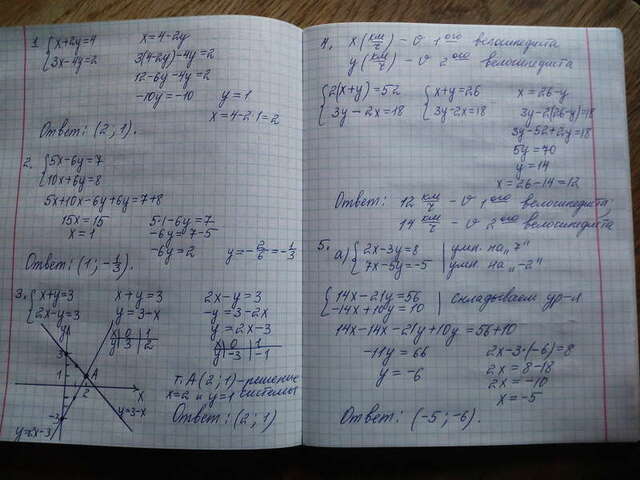 1. {x+2y=4
3x-4y=2
x=4-2y
3(4-2y)-4y=2
12-6y-4y=2
-10y=-10
y=1
x=4-2·1=2
Ответ: (2; 1).
2. {5x-6y=7
10x+6y=8
5x+10x-6y+6y=7+8
15x=15
x=1
5·1-6y=7
-6y=7-5
-6y=2
y=-2/6=-1/3
Ответ: (1; -1/3).
3. {x+y=3
2x-y=3
x+y=3
y=3-x
x 0 1
y 3 2
2x-y=3
-y=3-2x
y=2x-3
x 0 1
y -3 -1
y
3
1
A
2
x
-3
y=3-x
y=2x-3
т. A(2; 1)-решение
x=2 и y=1 системы
Ответ: (2; 1)
4. x(км/ч) - v 1ого велосипедиста
y(км/ч) - v 2ого велосипедиста
{2(x+y)=52
3y-2x=18
{x+y=26
3y-2x=18
x=26-y
3y-2(26-y)=18
3y-52+2y=18
5y=70
y=14
x=26-14=12
Ответ: 12 км/ч - v 1ого велосипедиста;
14 км/ч - v 2ого велосипедиста
5. а) {2x-3y=8 | умн. на „7"
7x-5y=-5 | умн. на „-2"
{14x-21y=56
-14x+10y=10 | складываем ур-я
14x-14x-21y+10y=56+10
-11y=66
y=-6
2x-3·(-6)=8
2x=8-18
2x=-10
x=-5
Ответ: (-5; -6).